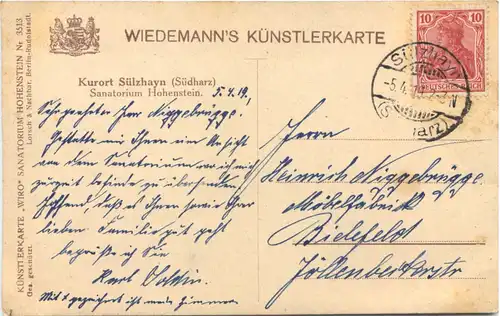 WIEDEMANN'S KÜNSTLERKARTE
KÜNSTLERKARTE „WIRO“ SANATORIUM HOHENSTEIN Nr 3513.
Ges. geschützt. Lorsch & Nachbar, Berlin-Rudolstadt.
Kurort Sülzhayn (Südharz)
Sanatorium Hohenstein.
5.4.19.
Sehr geehrter Herr Niggebrügge.
Gestatte mir Ihnen eine Ansicht
von dem Sanatorium wo ich mich
zurzeit befinde zu übersenden.
Hoffend, daß es Ihnen sowie Ihrer
lieben Familie gut geht
begrüßt Sie
Karl
Mit x gezeichnet ist mein Zimmer
10 10
DEUTSCHES REICH
SÜLZHAYN
-5.4.19. N
(Südharz)
Herrn
Heinrich Niggebrügge
Möbelfabrik
Bielefeld
Jöllenbeckerstr